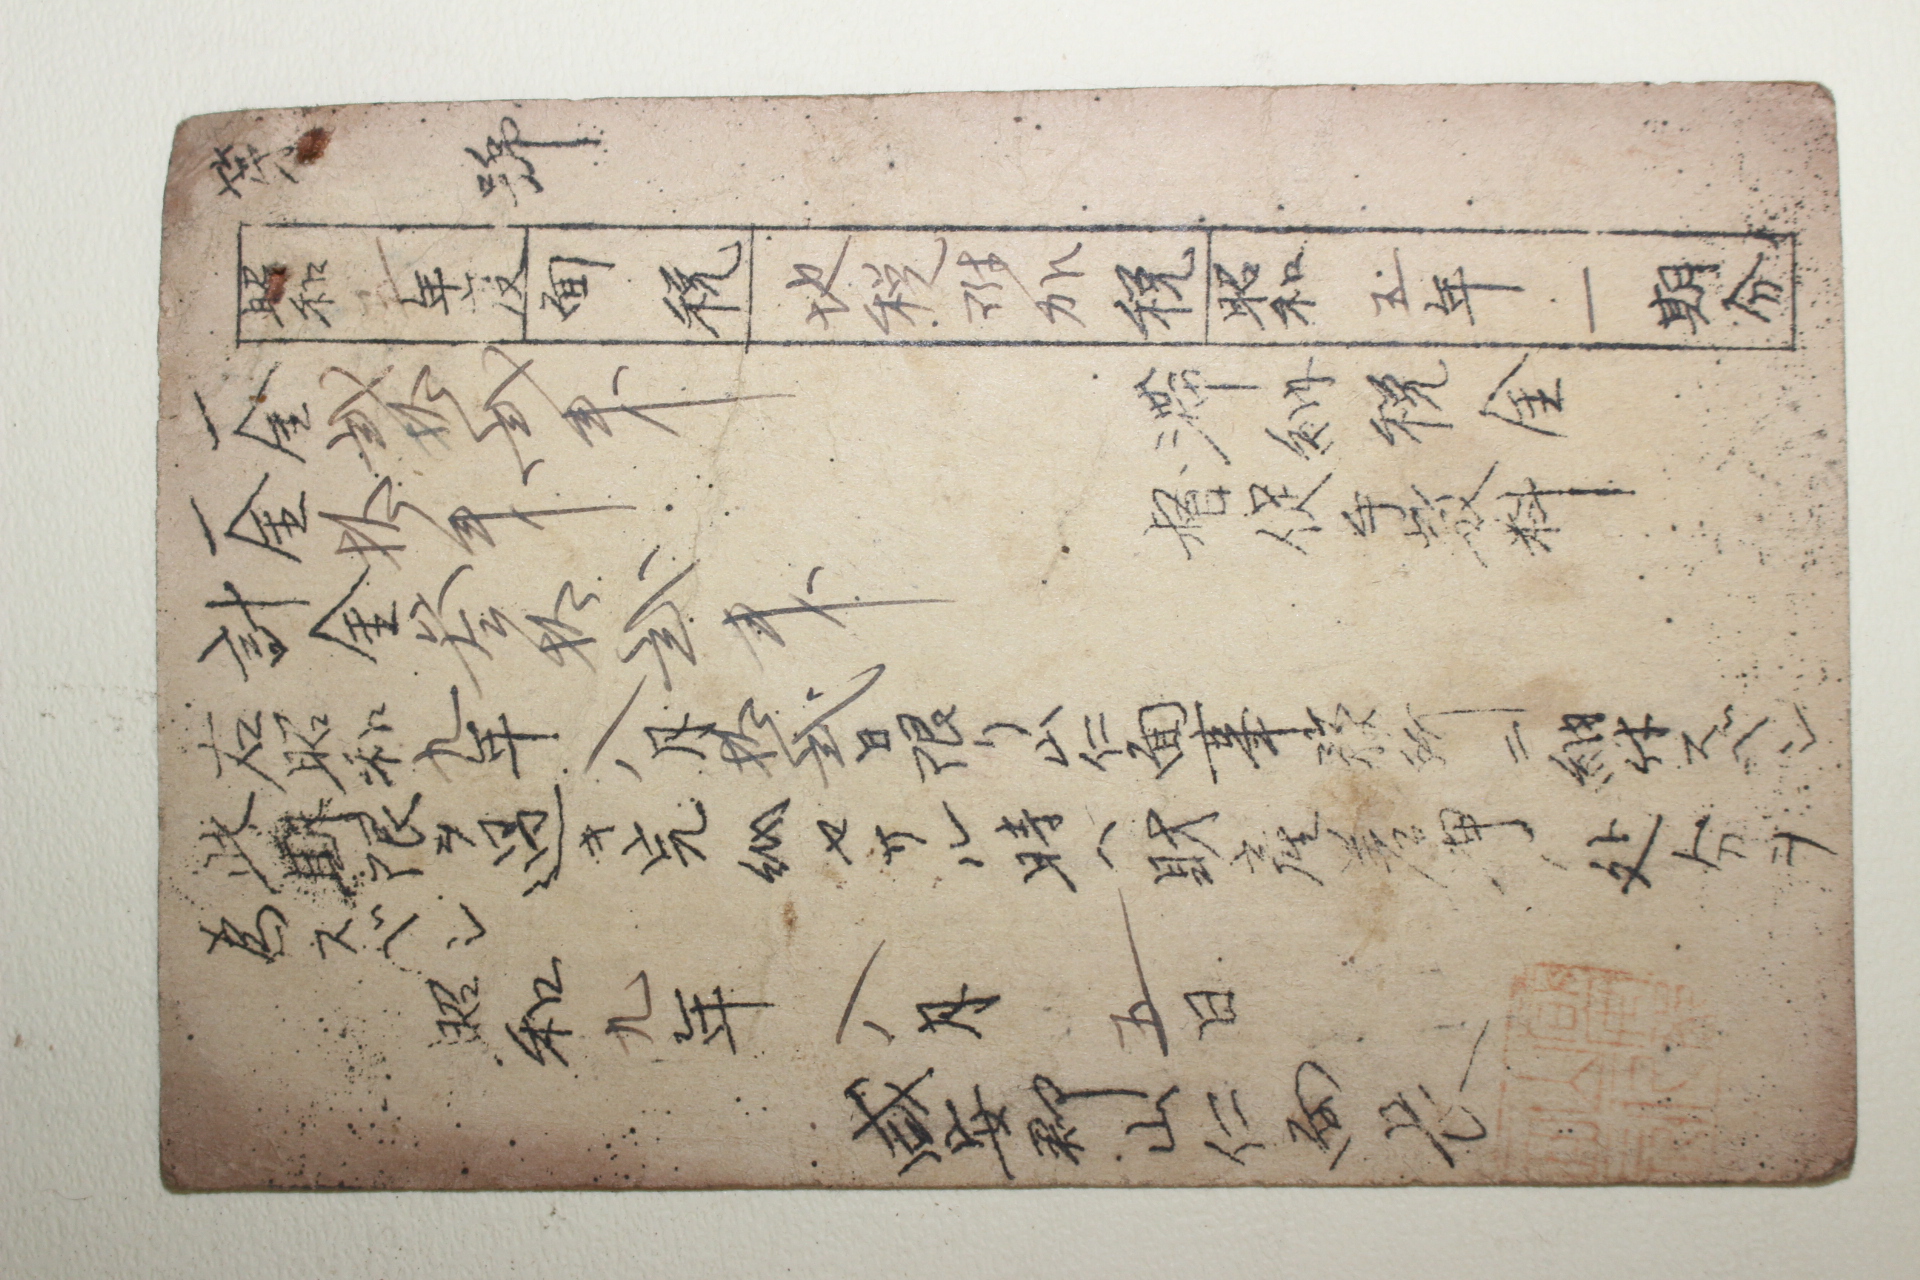 第 號
昭和五年度 面税 地税附加税 昭和五年一期分
一金貳拾貳銭 滞納税金
一金拾銭 督促手數料
計金參拾貳銭
右昭和九年八月拾貳日限リ山仁面事務所ニ納付スベシ
此期限ヲ過キ完納セサル時ハ財産差押ノ処分ヲ
為スベシ
昭和九年八月五日
咸安郡山仁面長